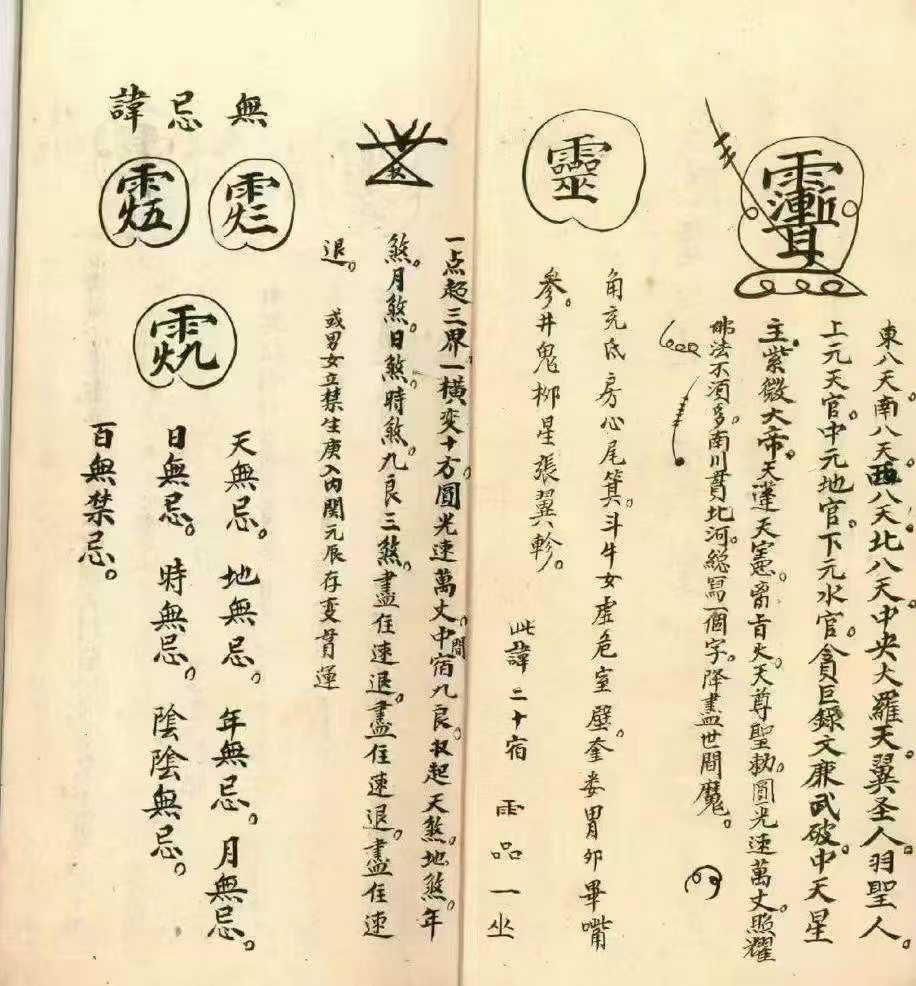 東八天南八天。西八天北八天中央大羅天。翼圣人。羽聖人。
上元天官。中元地官。下元水官。貪巨錄文廉武破。中天星
主紫微大帝。天蓬天憲。火。天尊聖勅。圓光速萬丈。照耀
佛法不須多。南川貫北河。総寫一個字。降盡世間魔。
靈
角充底房心尾箕。斗牛女虚危室壁。奎娄胃卯畢嘴
參。井鬼柳星張翼軫。
此諱二十宿 雨品一坐
一点起三界。一横变十方。圓光速萬丈。中間宿九良。叉起天煞。地煞。年
煞。月煞。日煞。時煞。九良三煞。盡住速退。盡住速退。盡住速
退。 或男女立禁生庚入内関元辰存变貫運
無忌諱
天無忌。地無忌。年無忌。月無忌。
日無忌。時無忌。陰陰無忌。
百無禁忌。